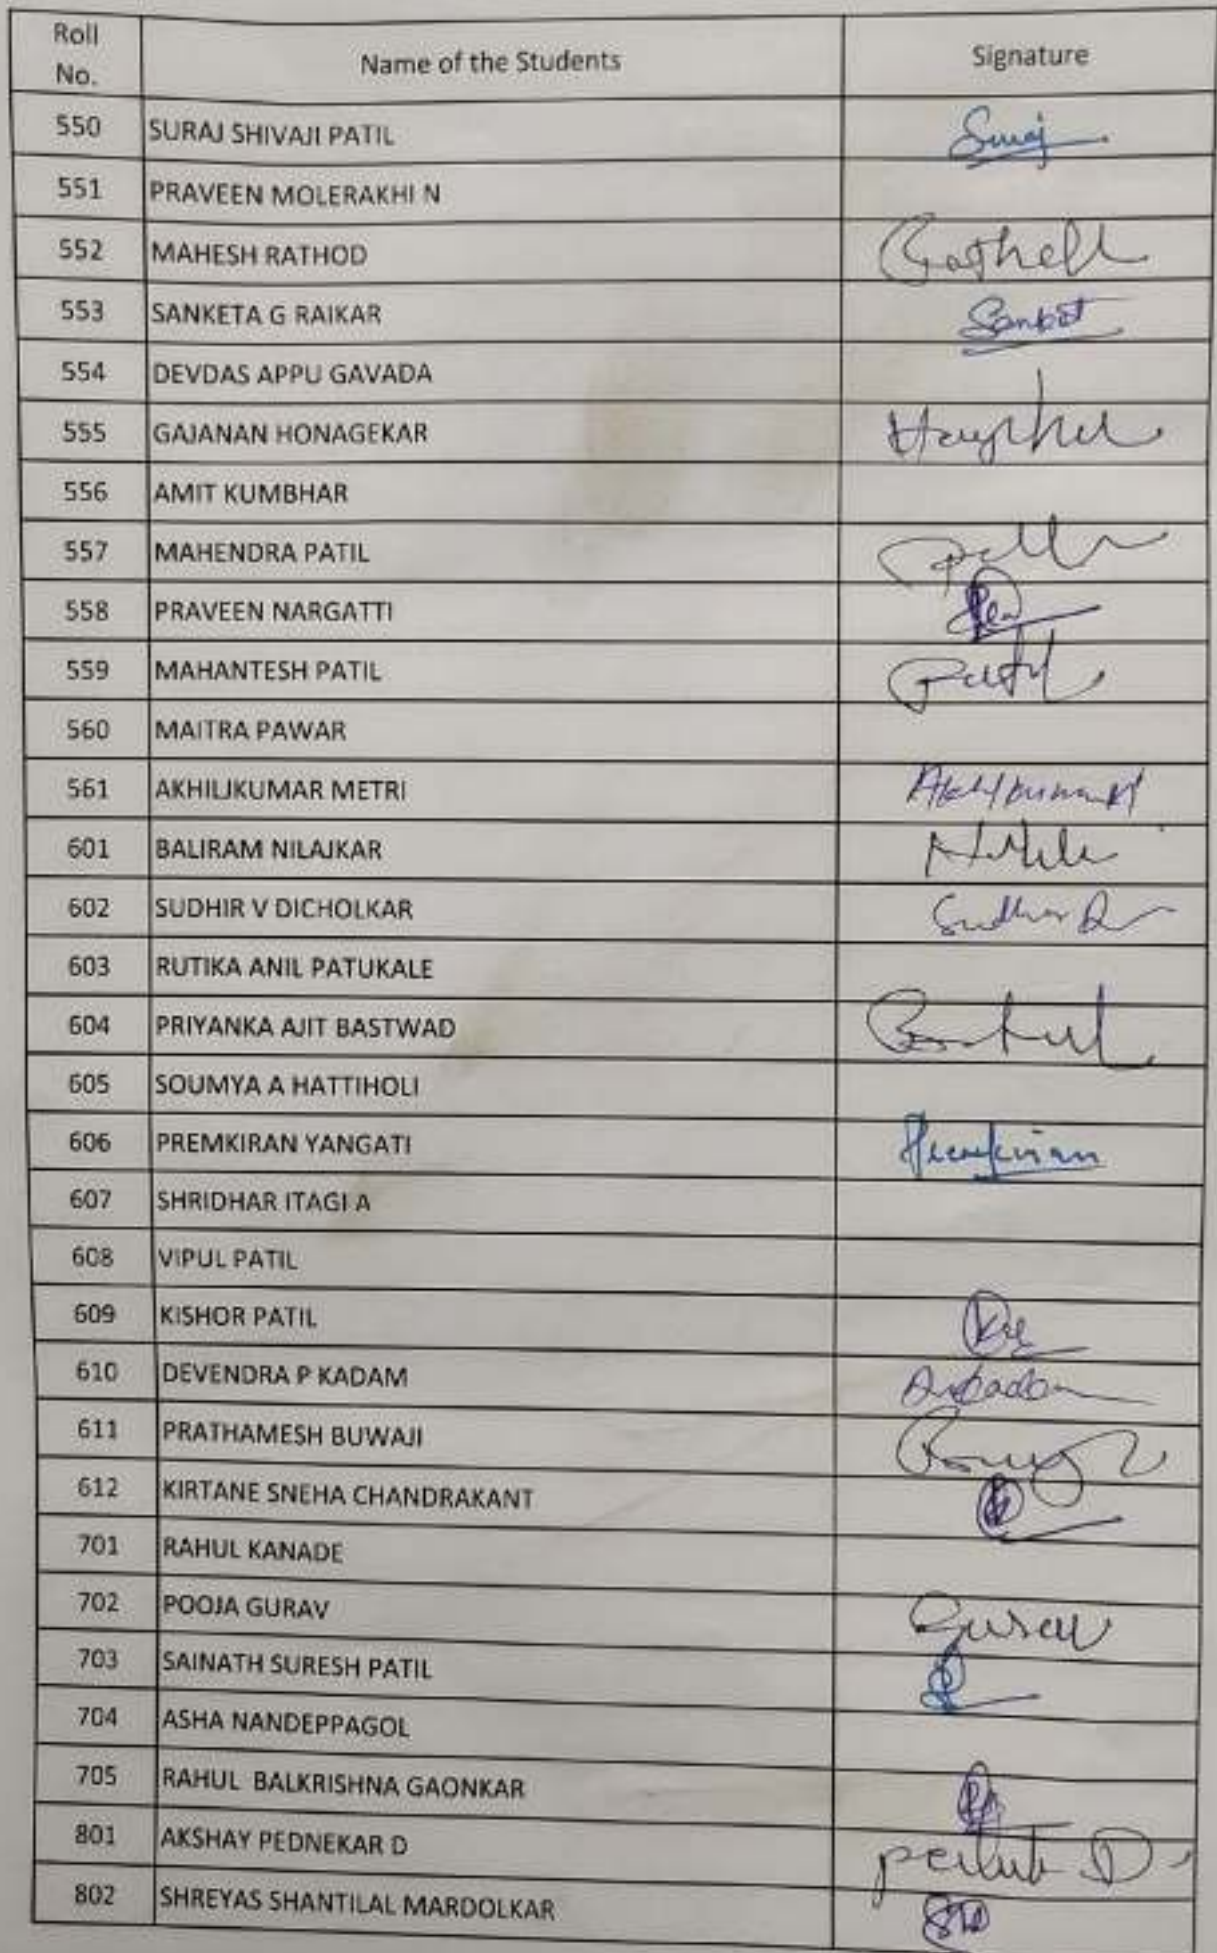 Roll No. Name of the Students Signature
550 SURAJ SHIVAJI PATIL Suraj
551 PRAVEEN MOLERAKHI N
552 MAHESH RATHOD
553 SANKETA G RAIKAR Sanket
554 DEVDAS APPU GAVADA
555 GAJANAN HONAGEKAR
556 AMIT KUMBHAR
557 MAHENDRA PATIL
558 PRAVEEN NARGATTI
559 MAHANTESH PATIL Patil
560 MAITRA PAWAR
561 AKHILJKUMAR METRI
601 BALIRAM NILAJKAR
602 SUDHIR V DICHOLKAR Sudhir D
603 RUTIKA ANIL PATUKALE
604 PRIYANKA AJIT BASTWAD
605 SOUMYA A HATTIHOLI
606 PREMKIRAN YANGATI Premkiran
607 SHRIDHAR ITAGI A
608 VIPUL PATIL
609 KISHOR PATIL
610 DEVENDRA P KADAM
611 PRATHAMESH BUWAJI
612 KIRTANE SNEHA CHANDRAKANT
701 RAHUL KANADE
702 POOJA GURAV Gurav
703 SAINATH SURESH PATIL
704 ASHA NANDEPPAGOL
705 RAHUL BALKRISHNA GAONKAR
801 AKSHAY PEDNEKAR D
802 SHREYAS SHANTILAL MARDOLKAR